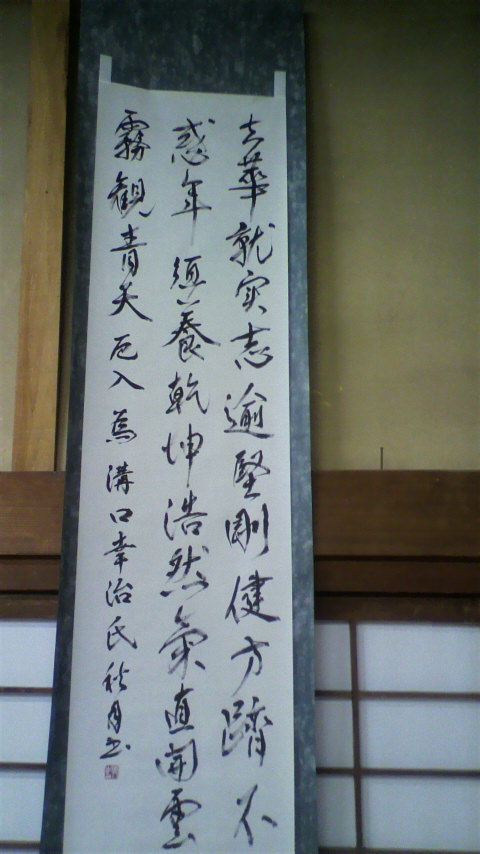 去華就実志逾堅剛健方躋不
惑年須養乾坤浩然氣直開雲
霧観青天 巨入 為溝口幸治氏 秋月書